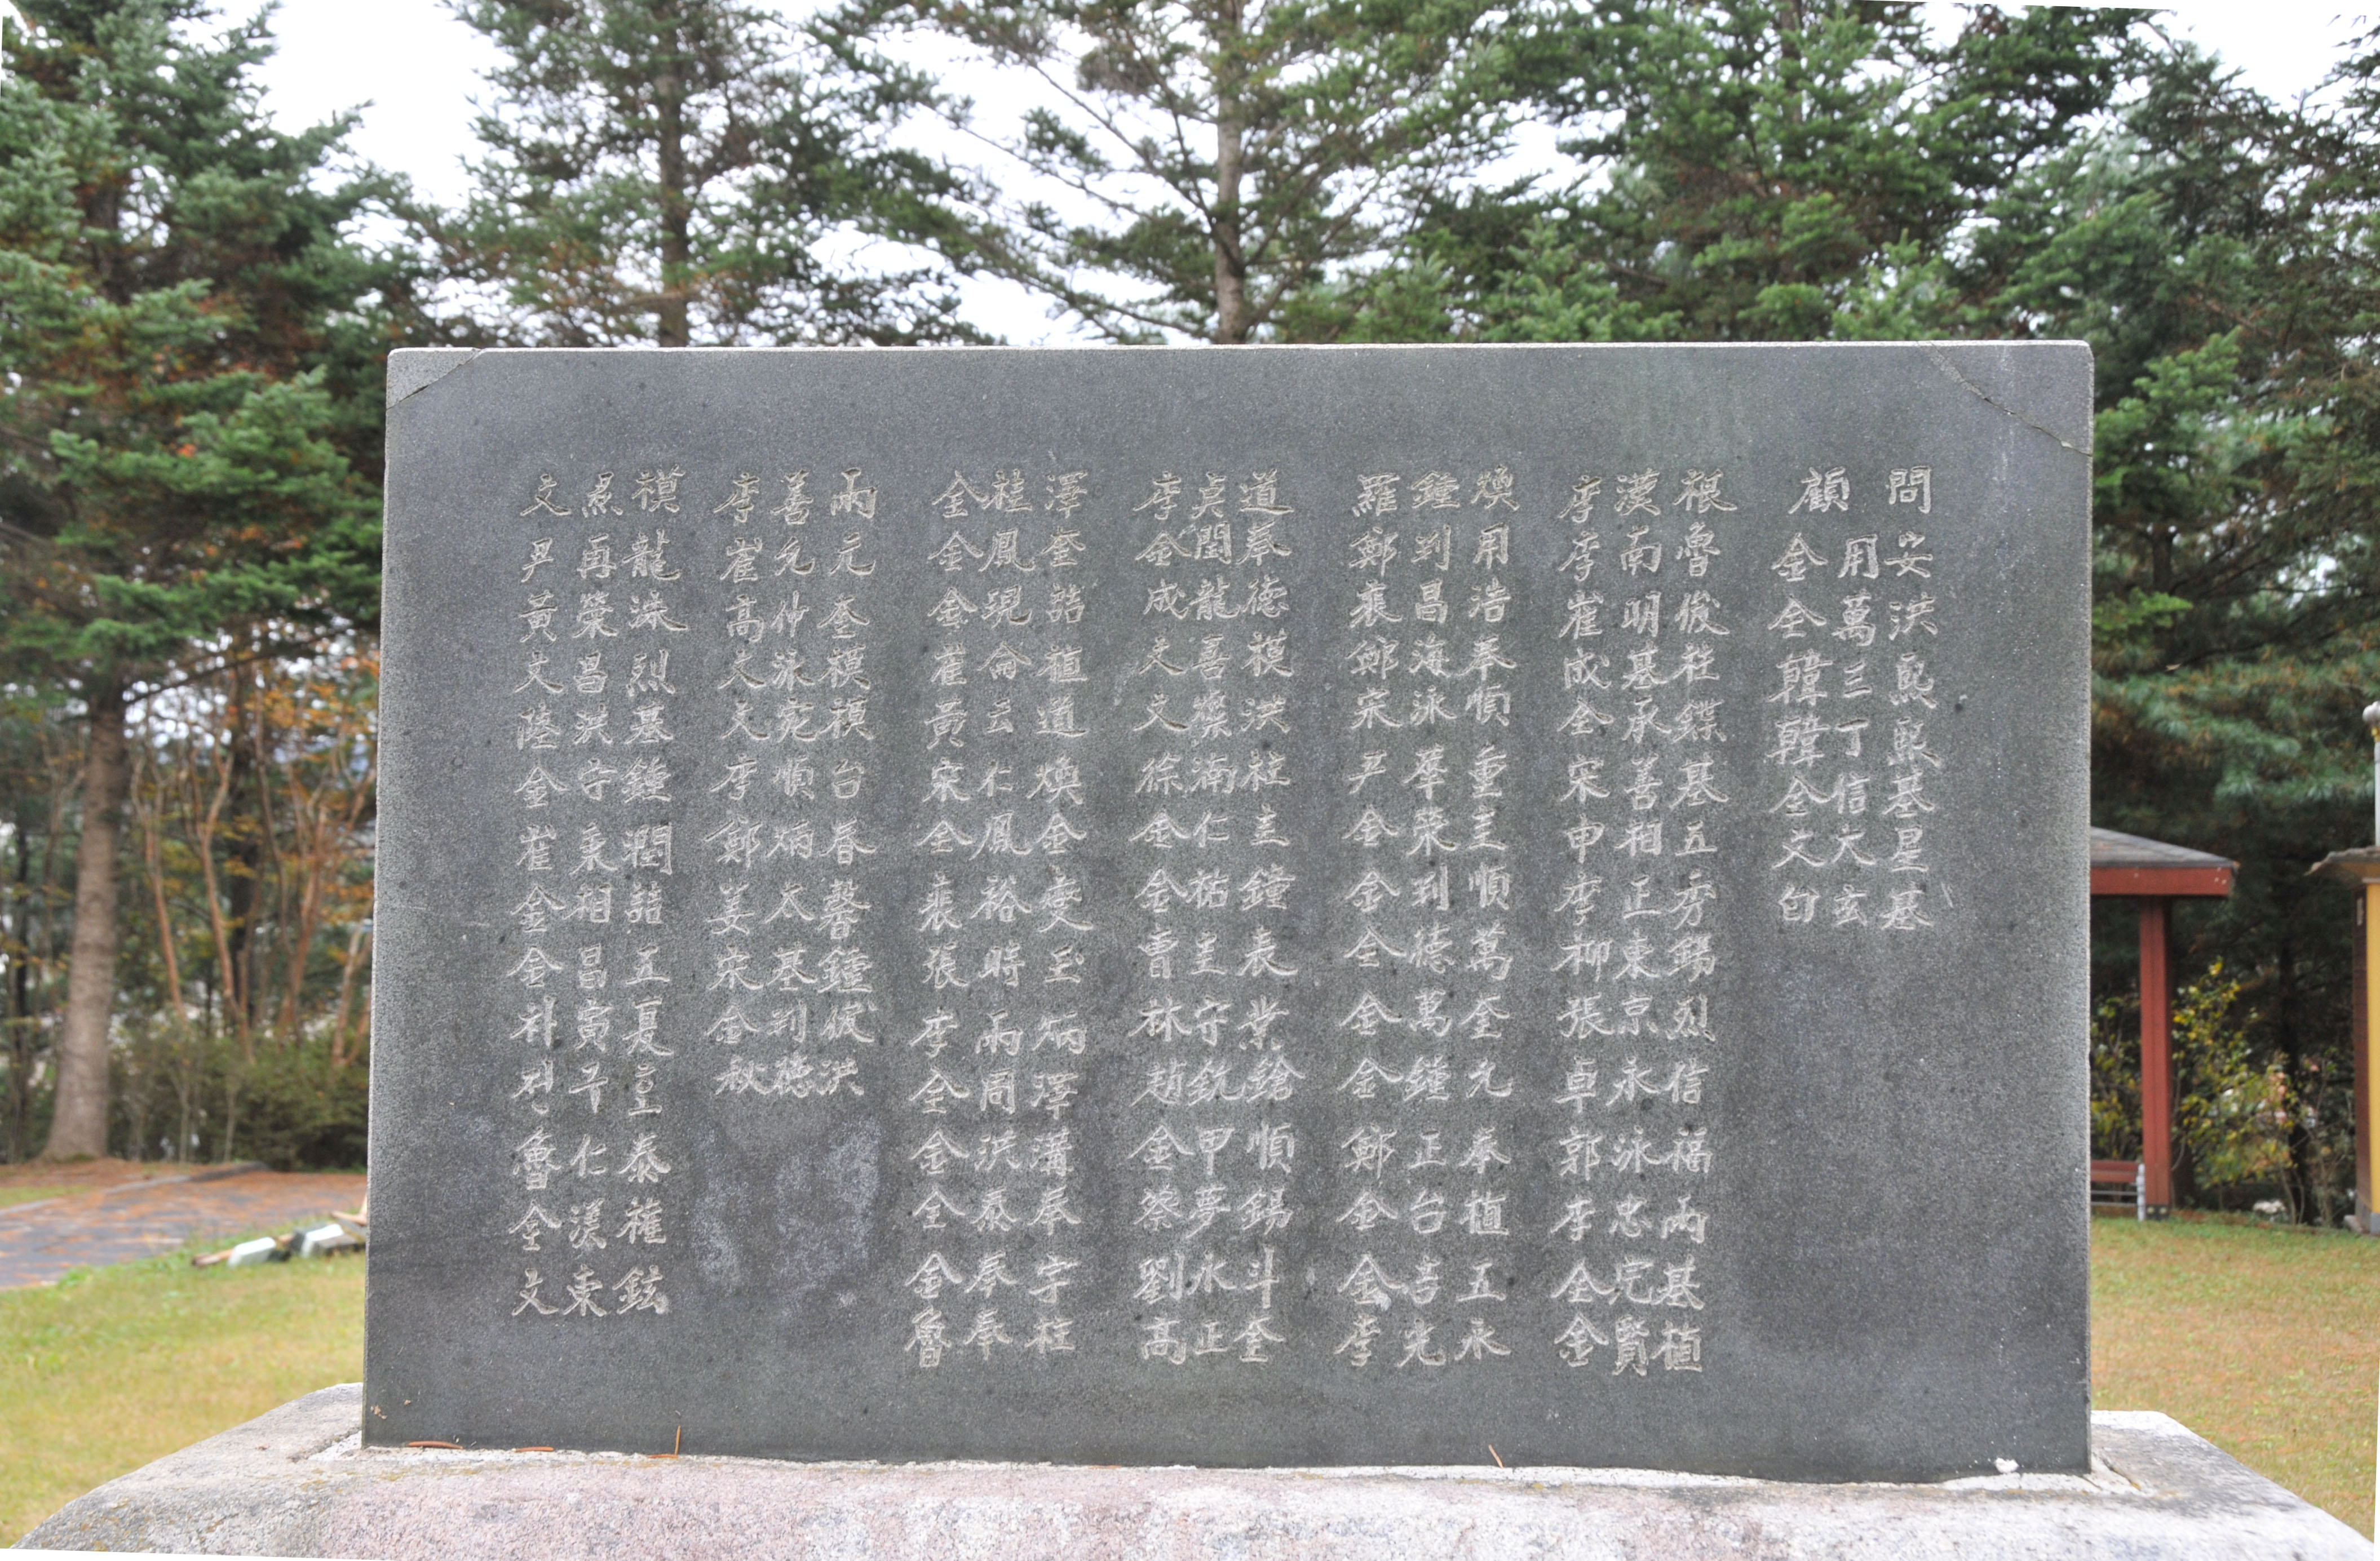 顧問
金用安
金萬洪
韓三熙
韓丁熙
金信基
文大星
白玄基
李漢根
李南魯
崔明俊
成基柱
金承鏶
宋善基
申相五
李正秀
柳東錫
張京烈
卓永信
郭泳福
李忠雨
金完基
金賢植
羅鍾煥
鄭判用
裵昌浩
鄭海奉
宋泳順
尹華重
金榮圭
金判順
金德萬
金萬奎
金鍾九
鄭正奉
金台植
金吉五
李光永
李貞道
金閏奉
成龍德
文善模
文藥洪
徐湳柱
金仁圭
金祐鐘
曺圭表
林守業
趙銑鎗
金甲順
蔡夢錫
劉永斗
高正奎
金桂澤
金鳳奎
金現喆
崔侖植
黃云道
宋仁煥
金鳳金
裵裕燮
張時玉
李雨炳
金周澤
金洪溝
金泰奉
金奉宇
魯奉柱
李善雨
崔允元
高仲奎
文泳模
文堯模
李順台
鄭炳春
姜太馨
宋基鍾
金判俊
秋德洪
文模
尹再龍
黃榮洙
文昌烈
陸洪基
金守鍾
崔秉潤
金相喆
金昌五
朴寅夏
魯仁泰
金漢權
文東鉉